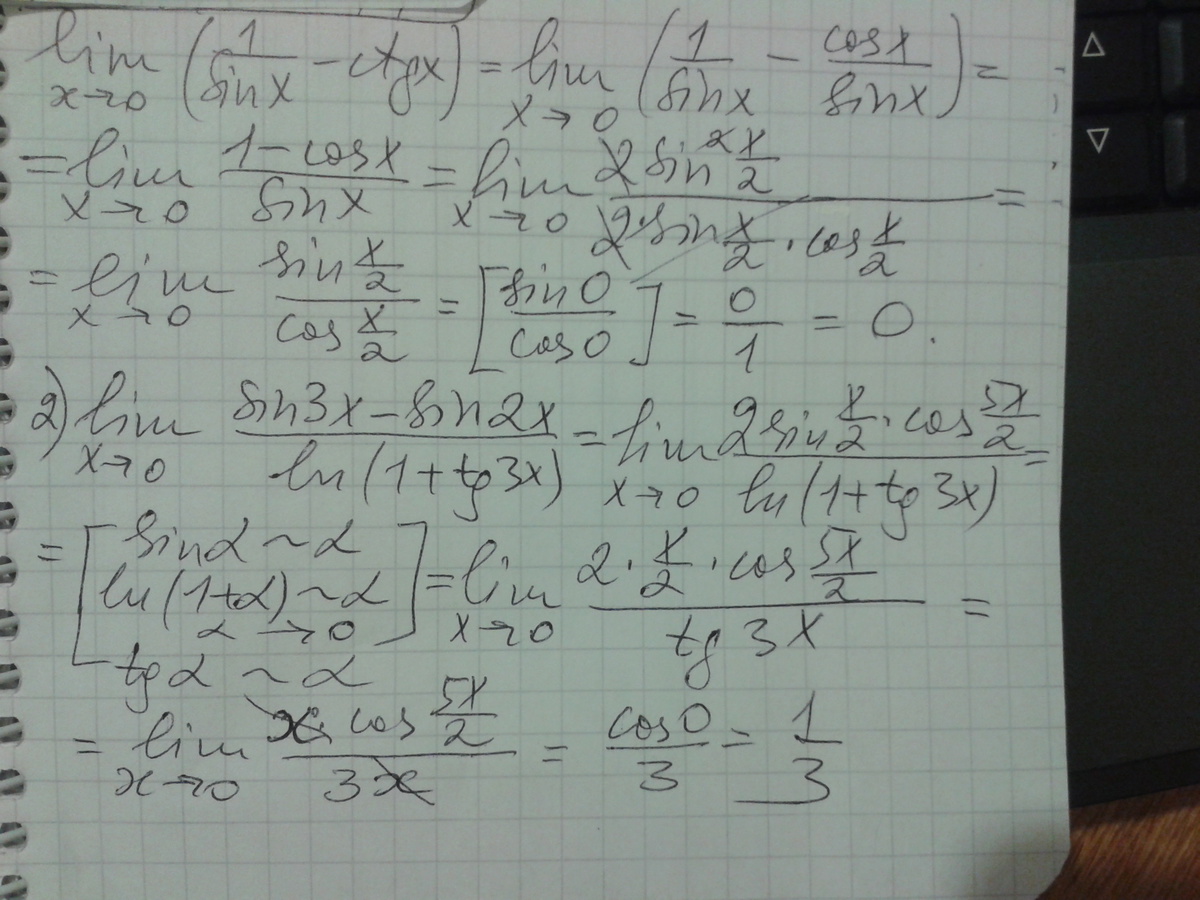 lim x→0 (1/sinx − ctgx) = lim x→0 (1/sinx − cosx/sinx) =
= lim x→0 (1−cosx)/sinx = lim x→0 (2 sin² x/2)/(2·sin x/2 · cos x/2) =
= lim x→0 (sin x/2)/(cos x/2) = [sin0/cos0] = 0/1 = 0.
2) lim x→0 (sin3x − sin2x)/(ln(1+tg3x)) = lim x→0 (2sin x/2 · cos 5x/2)/(ln(1+tg3x)) =
= [sinα ~ α
ln(1+α) ~ α
α→0
tgα ~ α] = lim x→0 (2 · x/2 · cos 5x/2)/(tg 3x) =
= lim x→0 (x · cos 5x/2)/(3x) = cos0/3 = 1/3